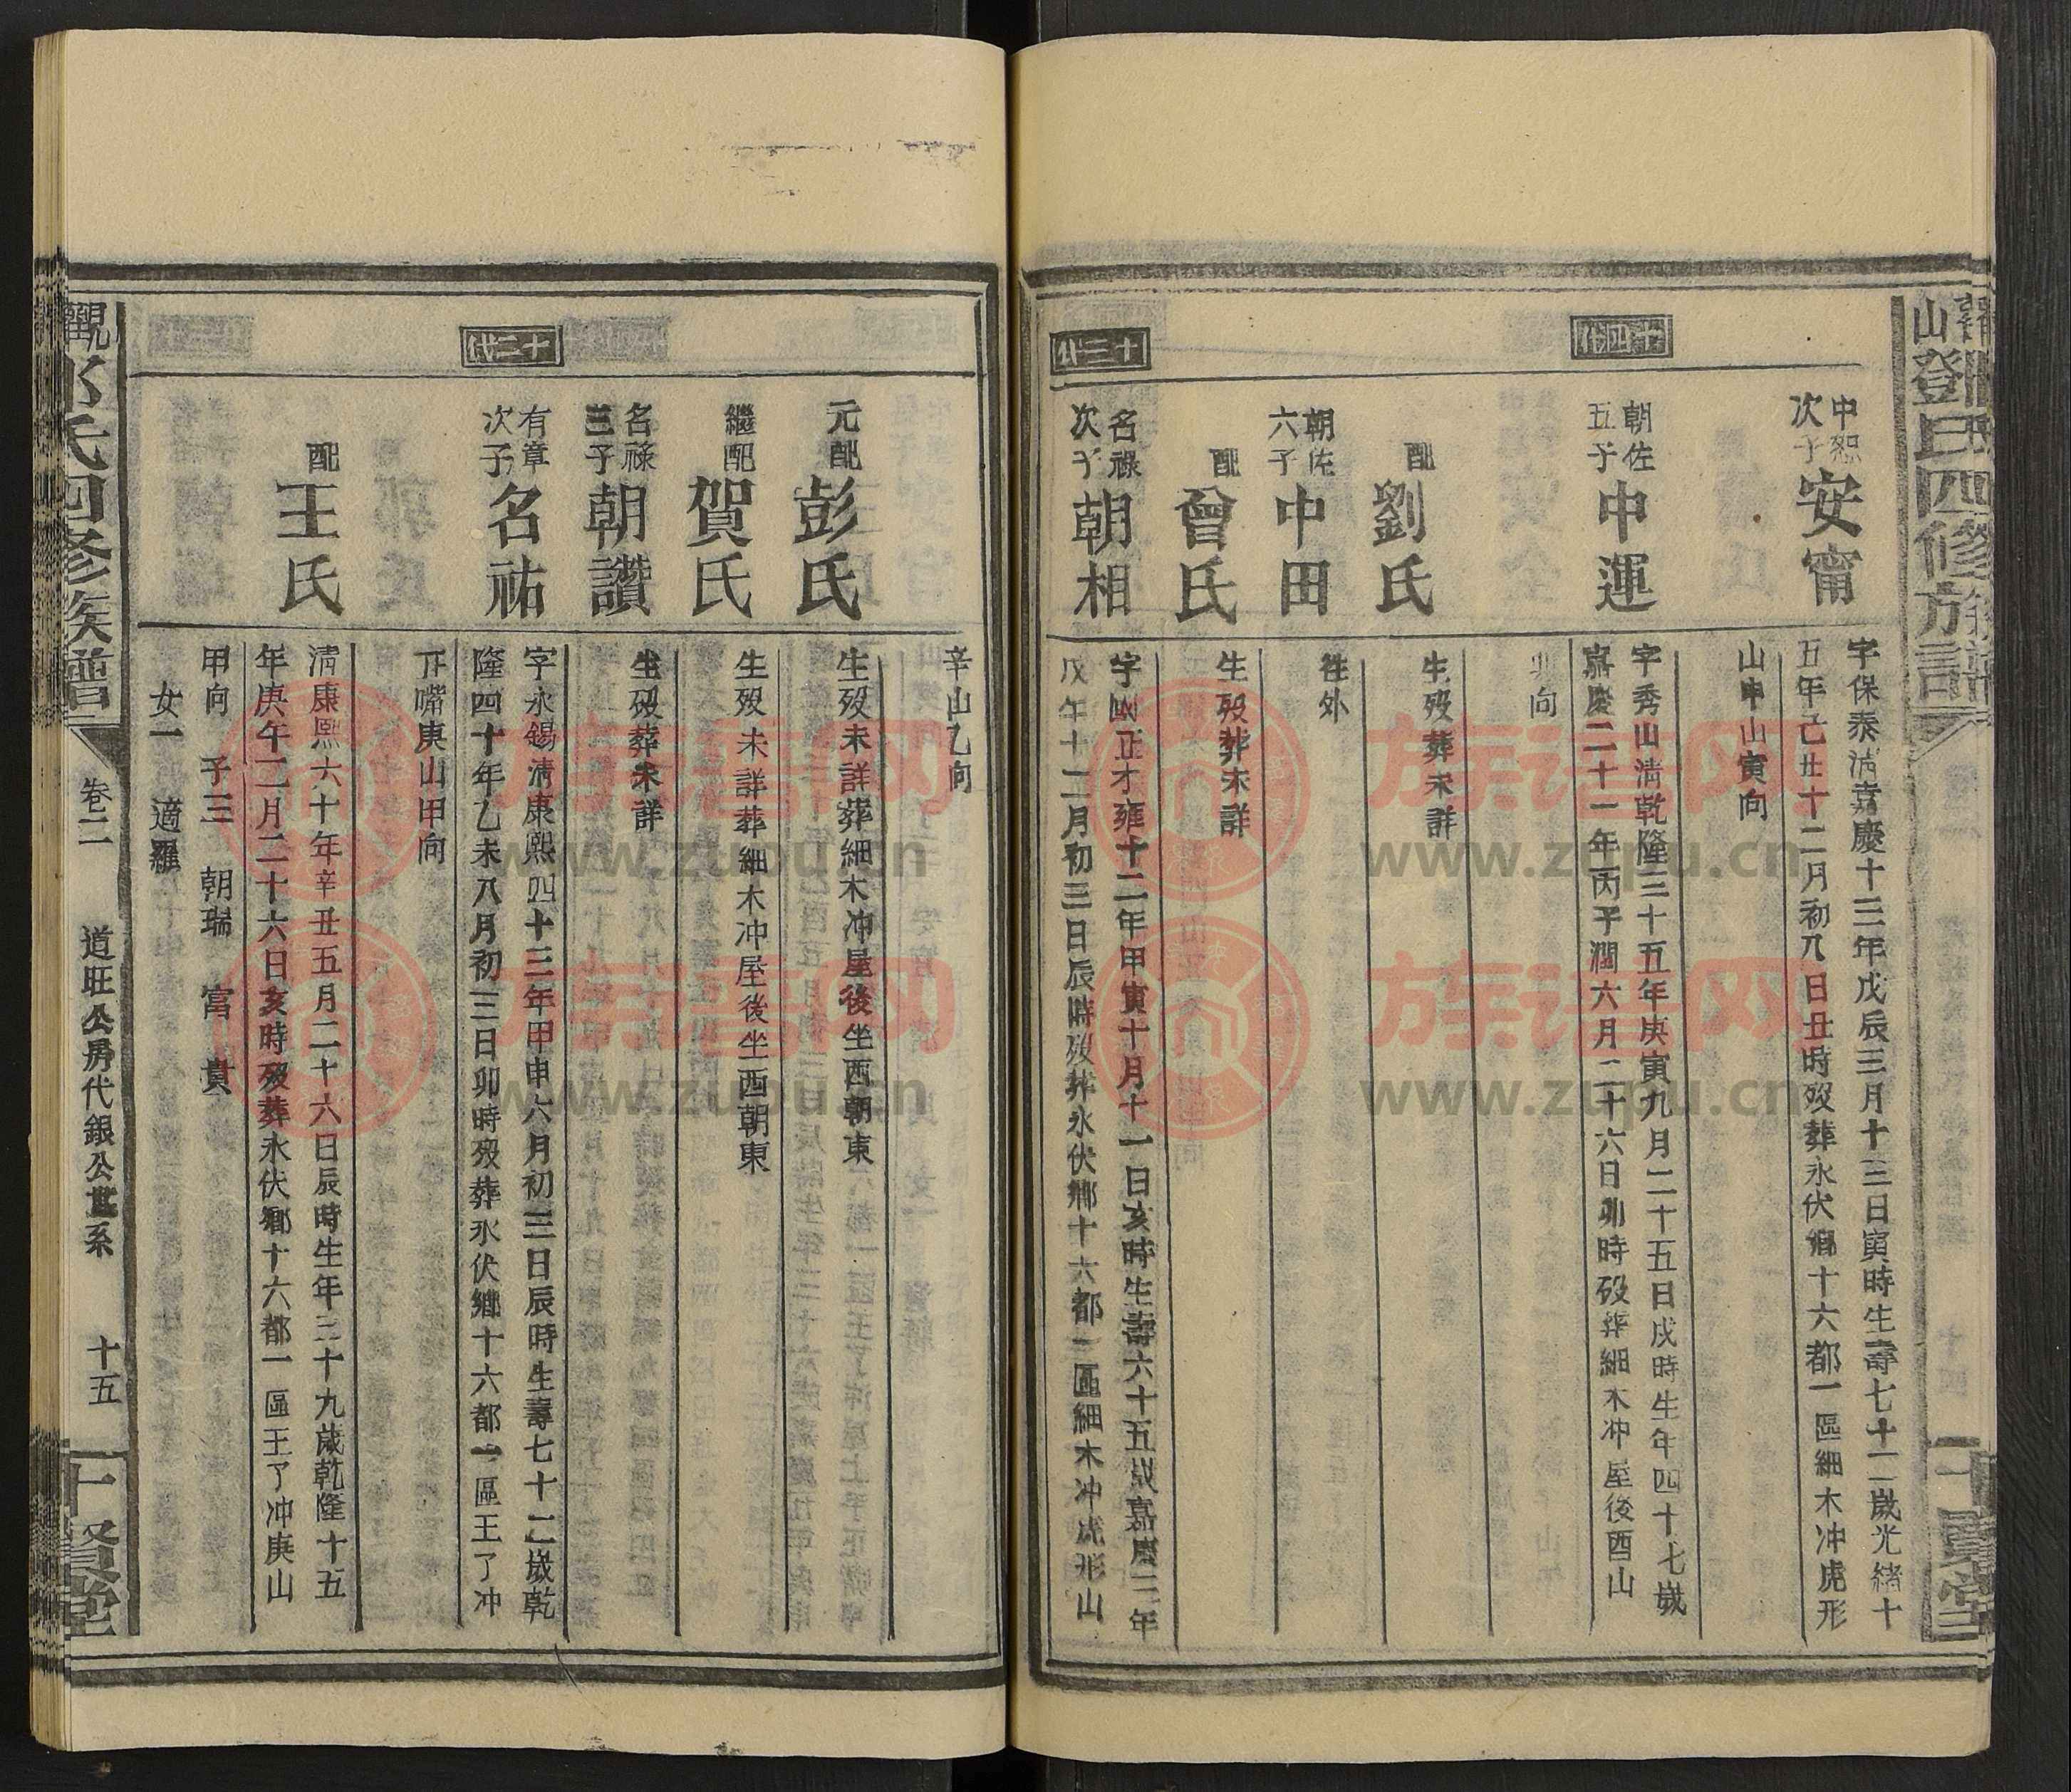 鄧氏四修族譜
十四代
中恕
次子
安甯
字保泰清嘉慶十三年戊辰三月十三日寅時生壽七十二歲光緒十
五年己丑十二月初八日丑時歿葬永伏鄉十六都一區細木冲虎形
山申山寅向
朝佐
五子
中運
字秀山清乾隆三十五年庚寅九月二十五日戌時生年四十七歲
嘉慶二十一年丙子潤六月二十六日卯時歿葬細木冲屋後酉山
卯向
配
劉氏
生歿葬未詳
朝佐
六子
中田
往外
配
曾氏
生歿葬未詳
十三代
名祿
次子
朝相
字國正才雍十二年甲寅十月十一日亥時生壽六十五歲嘉慶三年
戊午十二月初三日辰時歿葬永伏鄉十六都一區細木冲虎形山
辛山乙向
元配
彭氏
生歿未詳葬細木冲屋後坐西朝東
繼配
賀氏
生歿未詳葬細木冲屋後坐西朝東
名祿
三子
朝讚
生歿葬未詳
十二代
有章
次子
名祐
字永錫清康熙四十三年甲申六月初三日辰時生壽七十二歲乾
隆四十年乙未八月初三日卯時歿葬永伏鄉十六都一區王了冲
下嘴庚山甲向
配
王氏
清康熙六十年辛丑五月二十六日辰時生年三十九歲乾隆十五
年庚午二月二十六日亥時歿葬永伏鄉十六都一區王了冲庚山
甲向 子三 朝瑞 富 貴
女一 適羅
鄧氏四修族譜
卷二
道旺公房代銀公世系
十五
十賢堂
族谱网
www.zupu.cn
族谱网
www.zupu.cn
族谱网
www.zupu.cn
族谱网
www.zupu.cn